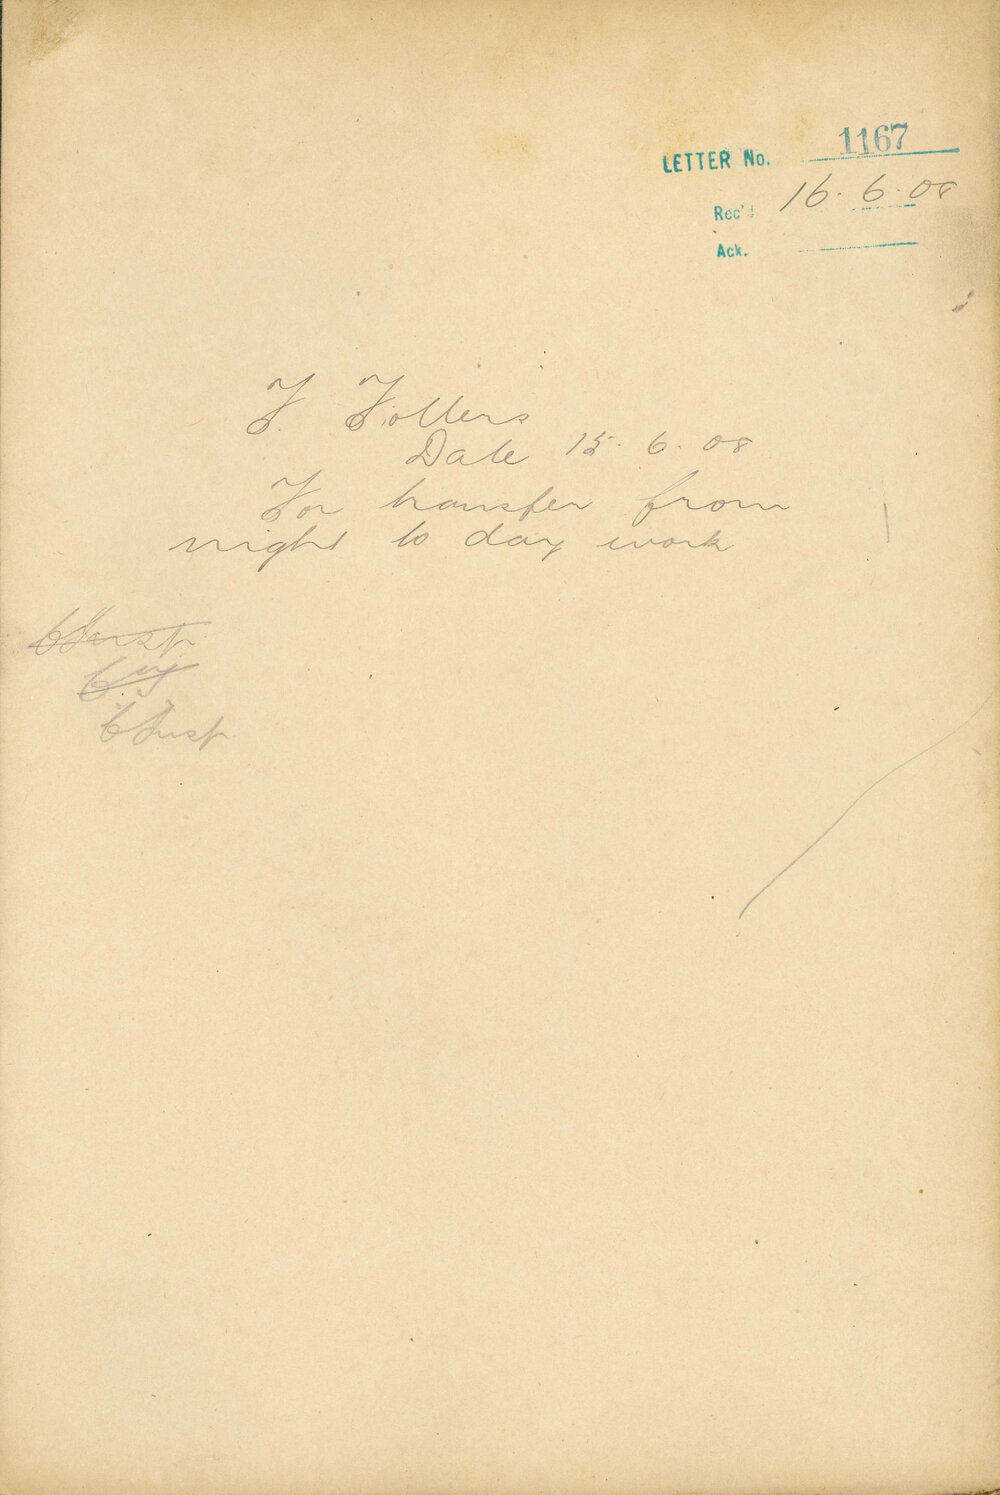 LETTER No. 1167
Rec'd 16.6.08
Ack.
F. Follers
Date 15.6.08
For transfer from
night to day work
C Insp
C
C Insp